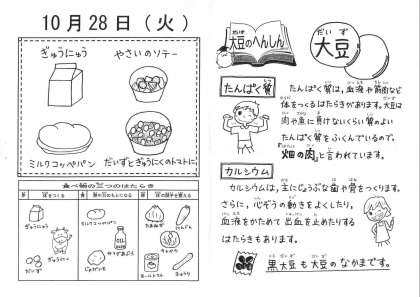 10月28日（火）
ぎゅうにゅう
やさいのソテー
ミルクコッペパン
だいずとぎゅうにくのトマトに
食べ物の三つのはたらき
ぎゅうにゅう
だいず
ミルクコッペパン
じゃがいも
たまねぎ
にんじん
キャベツ
ホールトマト
きゅうり
大豆のへんしん
だいず
大豆
たんぱく質
たんぱく質は、血液や筋肉など
体をつくるはたらきがあります。大豆は
肉や魚に負けないくらい質のよい
たんぱく質をふくんでいるので、
“畑の肉”と言われています。
カルシウム
カルシウムは、主にじょうぶな歯や骨をつくります。
さらに、心ぞうの動きをよくしたり、
血液をかためて出血を止めたりする
はたらきもあります。
黒大豆も大豆のなかまです。